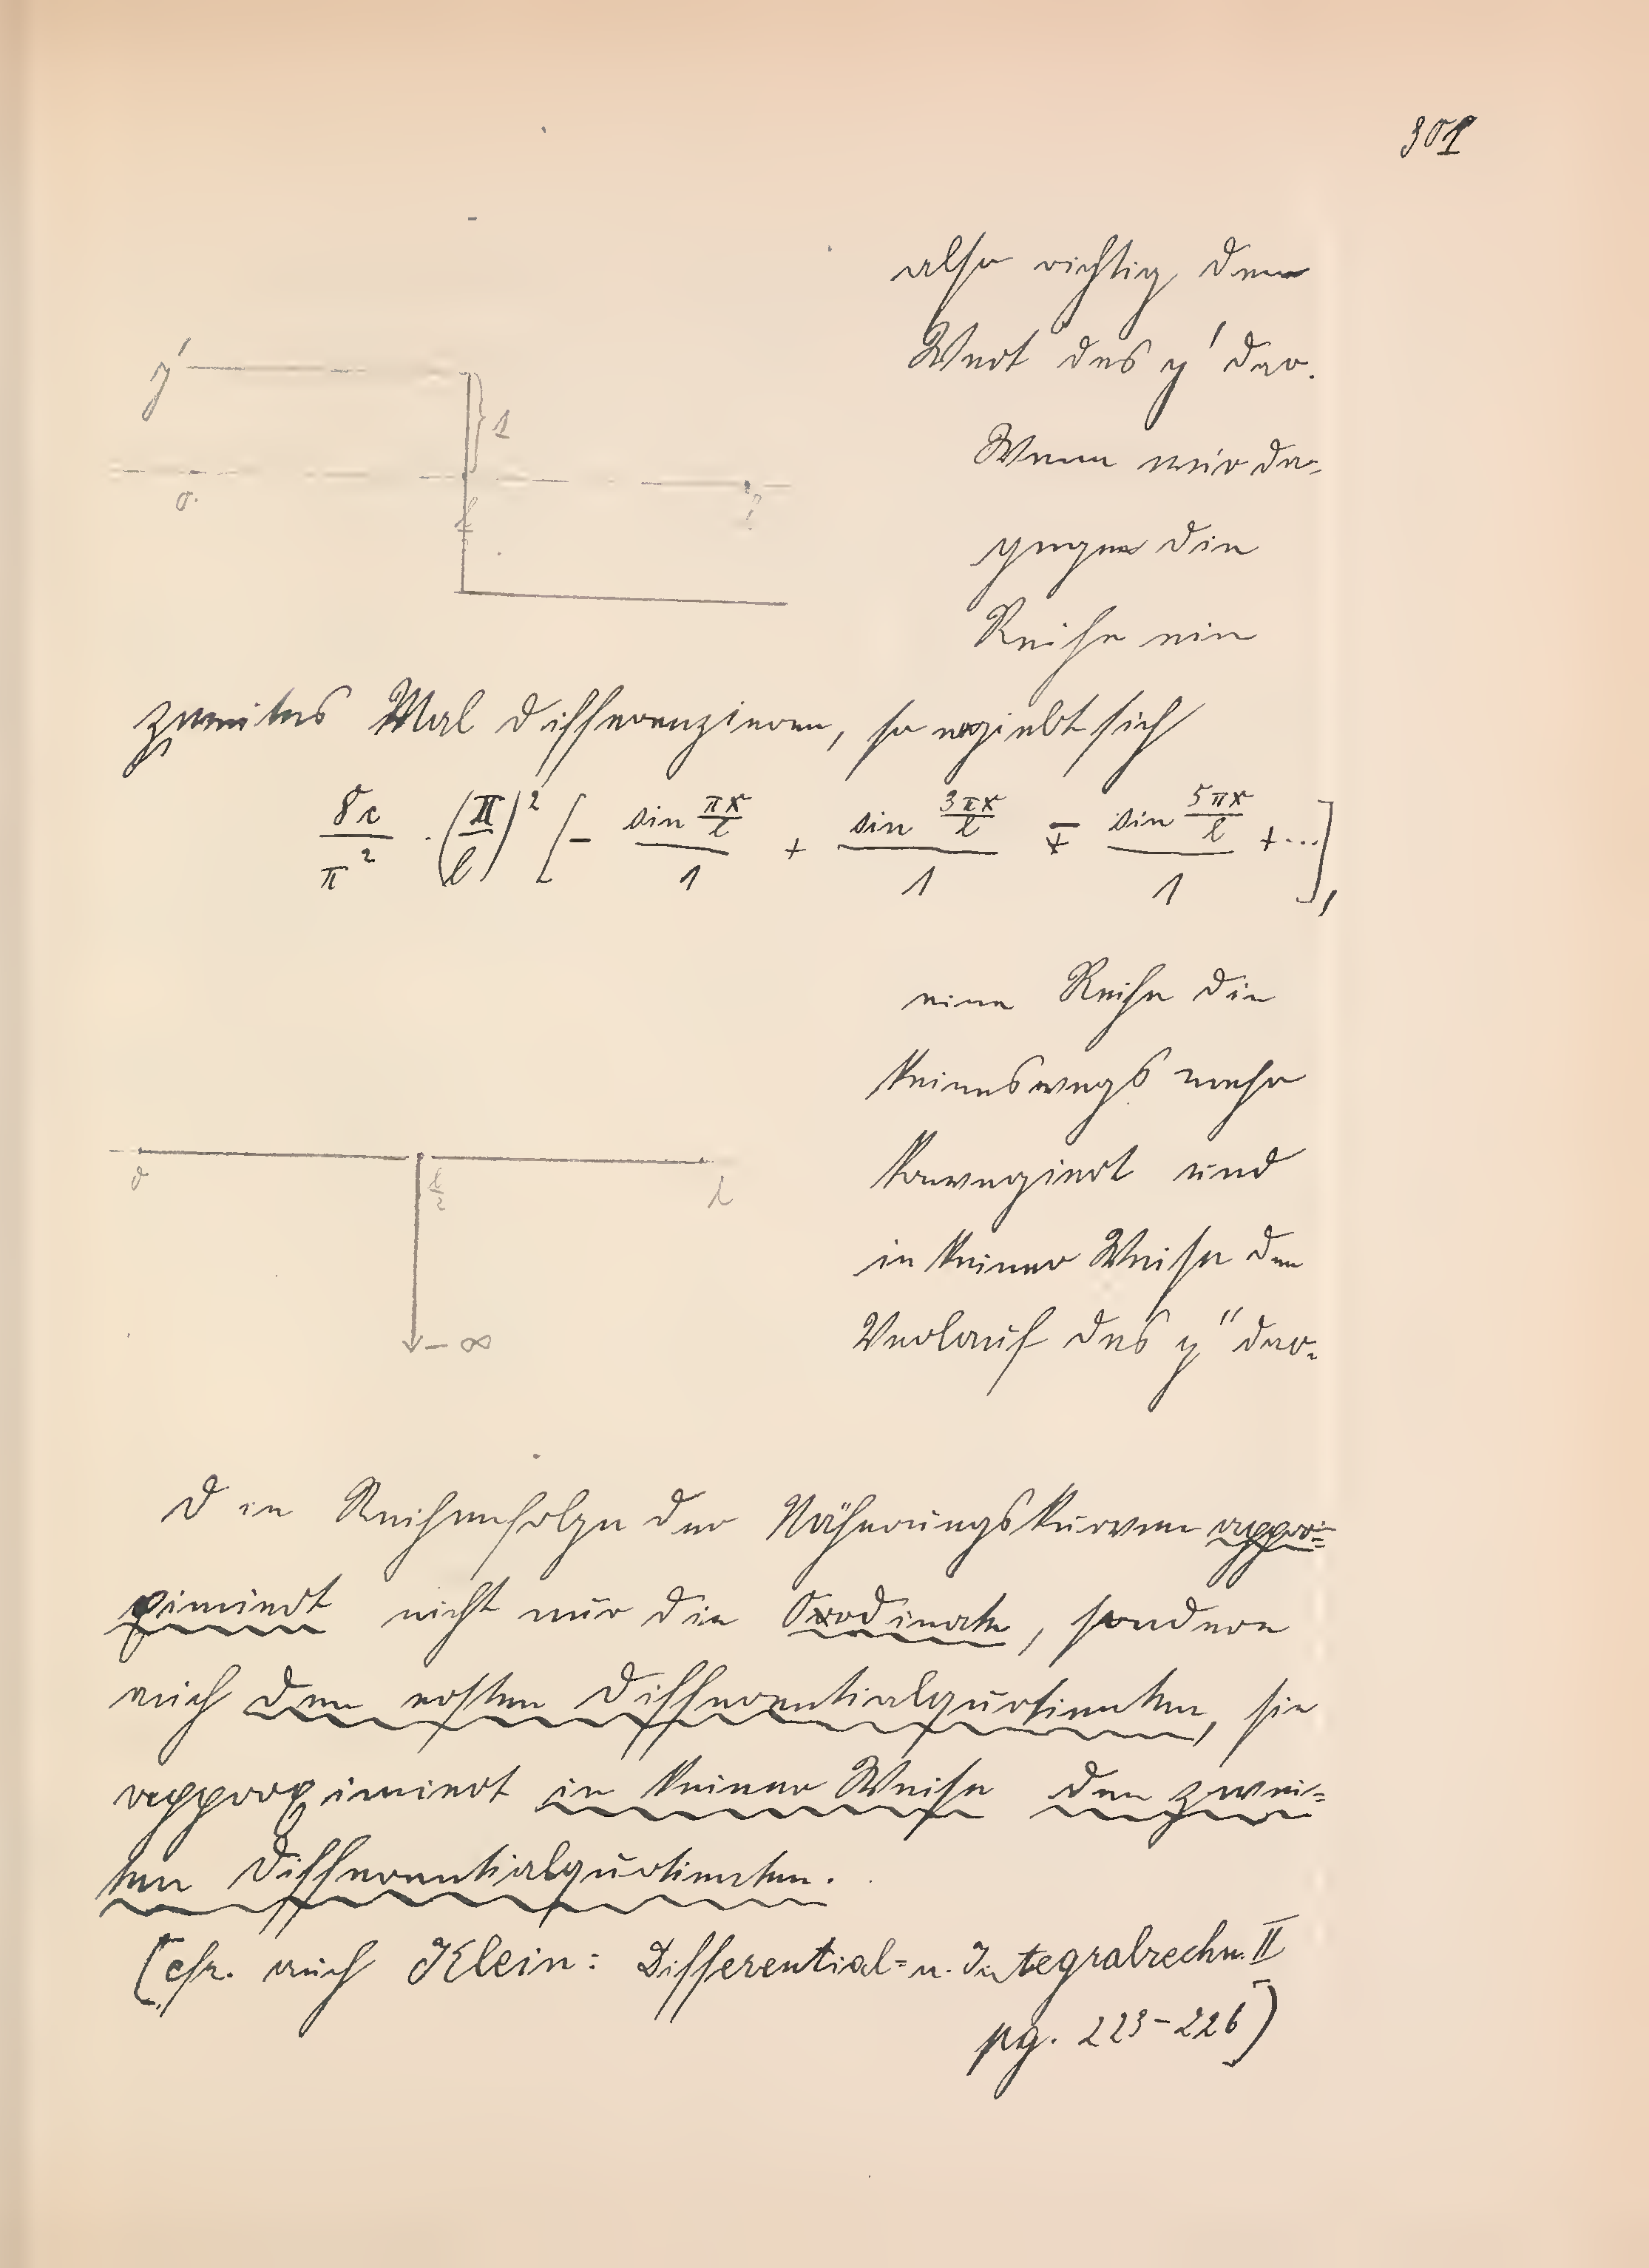 301
also richtig den
Wert des y' dar.
Wenn wir da-
gegen die
Reihe ein
y'
1
0.
l/2
l
zweites Mal differenzieren, so ergiebt sich
8c/π² · (π/l)² [ - sin πx/l / 1 + sin 3πx/l / 1 ∓ sin 5πx/l / 1 + ... ],
eine Reihe die
keineswegs mehr
konvergiert und
in keiner Weise den
Verlauf des y'' dar.
0
l/2
l
- ∞
Die Reihenfolge der Näherungskurven appro=
ximiert nicht nur die Ordinate, sondern
auch den ersten Differentialquotienten, sie
approximiert in keiner Weise den zwei=
ten Differentialquotienten.
[cfr. auch Klein: Differential= u. Integralrechn. II
pg. 223-226]